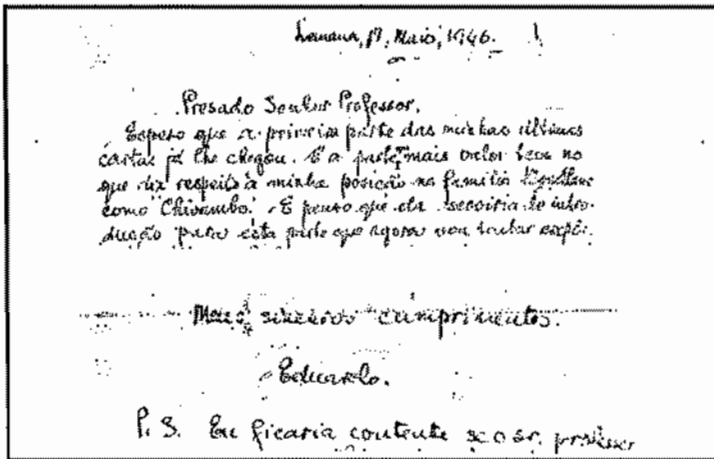 Lemana, 17, Maio, 1946.
Presado Senhor Professor.
Espero que a primeira parte das minhas últimas
cartas já lhe chegou. É a parte mais valor tem no
que diz respeito à minha posição na familia
como "Chivambo". E penso que ela serviria de intro-
dução para esta parte que agora vou tentar expli-
Meus sinceros cumprimentos.
Eduardo.
P. S. Eu ficaria contente se o sr. professor